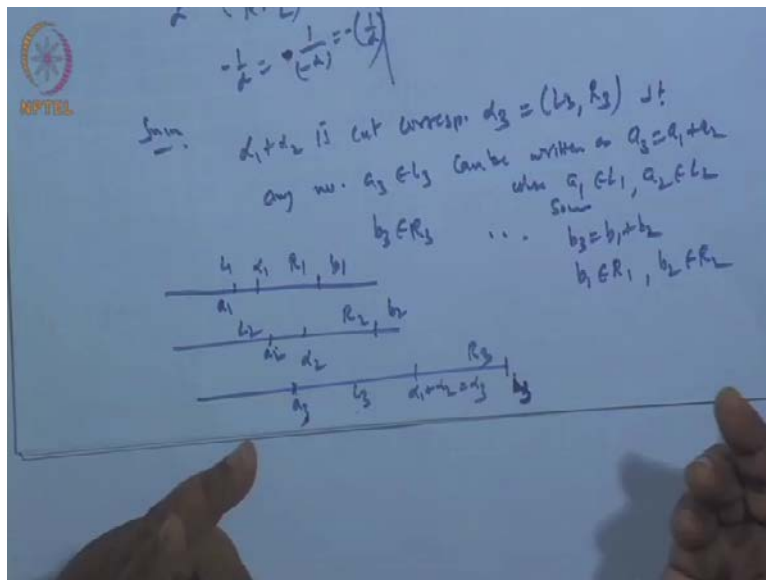 NPTEL
-1/α = 1/(-α) = -(1/α)
Sum. α₁+α₂ is cut corresp. α₃ = (L₃, R₃) st.
any no. a₃ ∈ L₃ can be written as a₃ = a₁+a₂
where a₁ ∈ L₁, a₂ ∈ L₂
Sum
b₃ ∈ R₃ ... b₃ = b₁+b₂
b₁ ∈ R₁, b₂ ∈ R₂
L₁ α₁ R₁ b₁
a₁
L₂ R₂ b₂
a₂ α₂
R₃
a₃ L₃ α₁+α₂=α₃ b₃